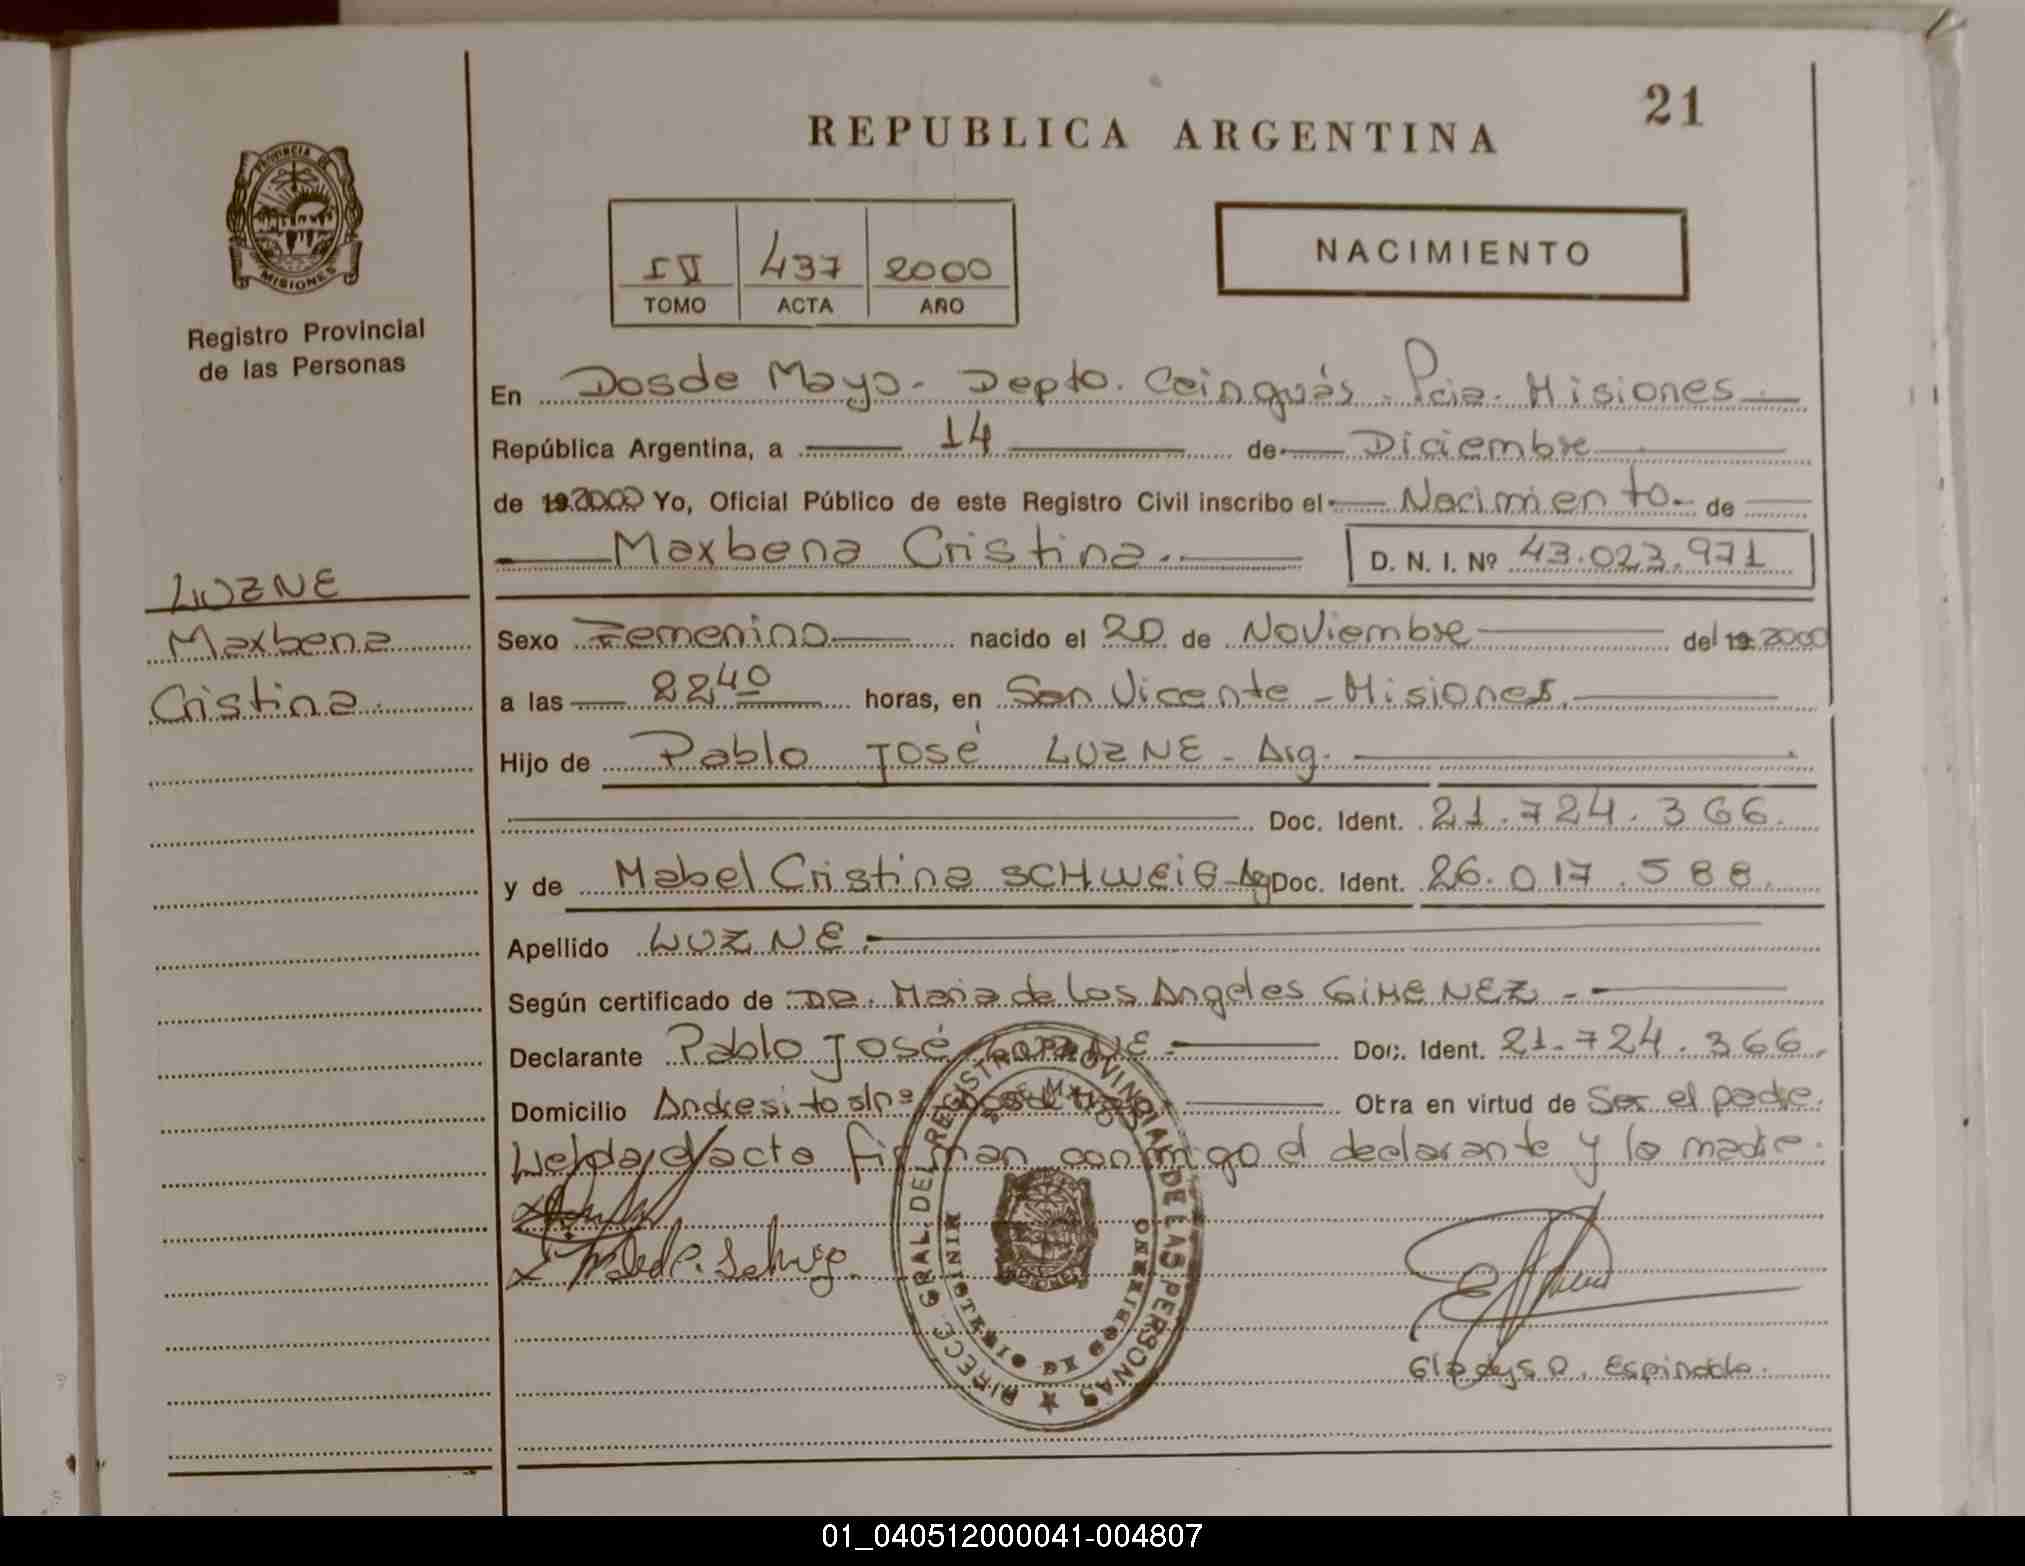 21
REPUBLICA ARGENTINA
PROVINCIA DE
MISIONES
Registro Provincial
de las Personas
IV 437 2000
TOMO ACTA AÑO
NACIMIENTO
En Dosde Mayo. Depto. Caingüás. Pcia. Misiones
República Argentina, a 14 de Diciembre
de 19 2000 Yo, Oficial Público de este Registro Civil inscribo el Nacimiento de
Maxbena Cristina. D. N. I. Nº 43.023.971
LUZNE
Maxbena
Cristina.
Sexo Femenino nacido el 20 de Noviembre del 19 2000
a las 22 40 horas, en San Vicente - Misiones.
Hijo de Pablo José LUZNE - Arg.
Doc. Ident. 21.724.366.
y de Mabel Cristina SCHWEIG - Ag Doc. Ident. 26.017.588.
Apellido LUZNE.
Según certificado de Dra. Maria de Los Angeles GIMENEZ -
Declarante Pablo José LUZNE. Doc. Ident. 21.724.366.
Domicilio Andresito s/nº Otra en virtud de Ser el padre.
Leída el acta firman conmigo el declarante y la madre.
DIRECC. GRAL. DEL REGISTRO PROVINCIAL DE LAS PERSONAS
MINISTERIO DE GOBIERNO
MISIONES
Gladys
01_040512000041-004807